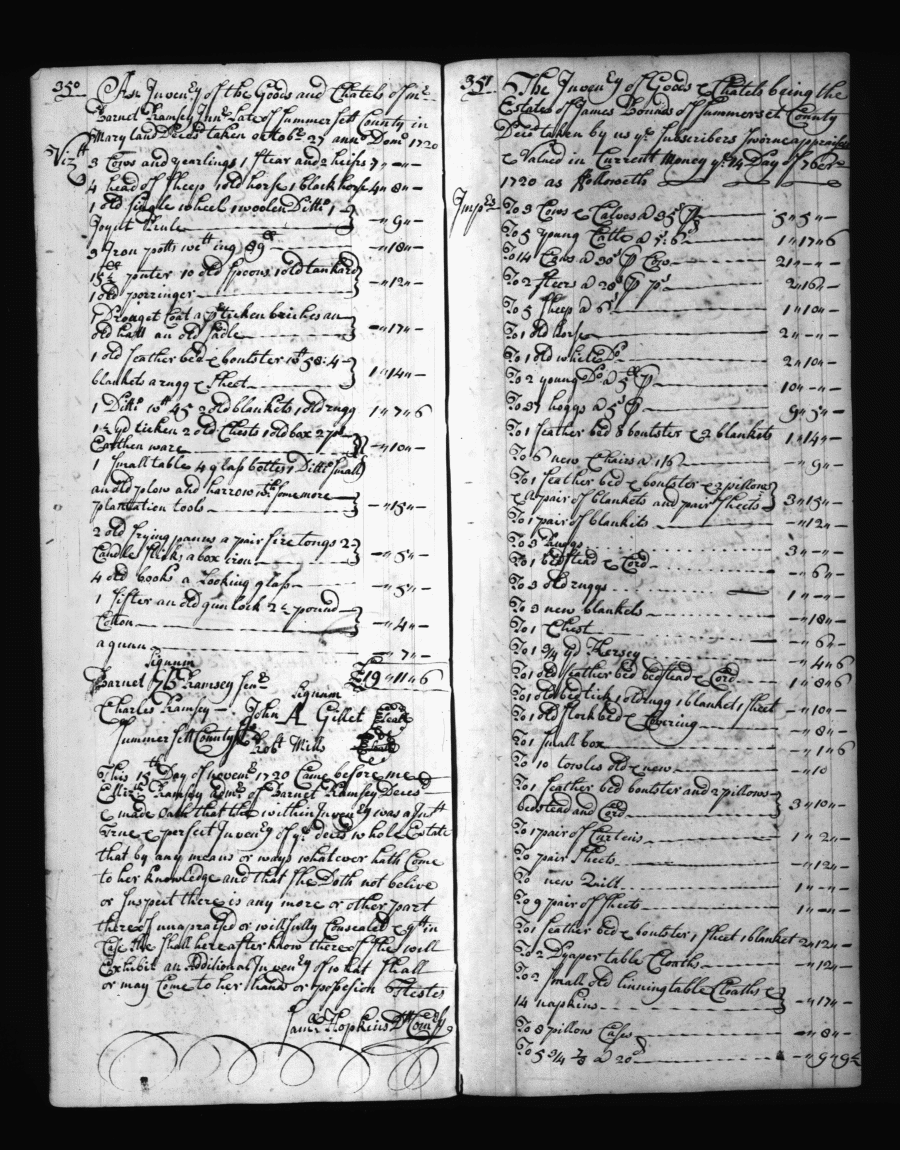 350
An Inven:ry of the Goods and Chatels of mr
Barnet Ramsey Junr late of Summersett County in
Maryland Deced taken octobr 27 ann Dom 1720
Vizt
3 Cows and yearlings 1 stear and 2 heifrs 7 " — " —
4 head of Sheep 1 old horse 1 black horse 4 " 8 " —
1 old single wheel 1 woolen Ditto 1
Joynt Rule — " 9 " —
3 Iron potts weighing 89 ll — " 18 " —
15½ ll puter 10 old spoons 1 old tankard
1 old porringer — " 12 " —
1 Drouget Coat a ticken briches an
old hatt an old sadle — " 17 " —
1 old feather bed & boulster wt 58: 4
blankets a rugg & sheet 1 " 14 " —
1 Ditto wtt 45 2 old blankets 1 old rugg 1 " 7 " 6
1½ yd ticken 2 old Chests 1 old box
Earthen ware — " 10 " —
1 Small table 4 glass bottles 1 Ditto small
an old plow and harrow wth some more
plantation tools — " 15 " —
2 old frying panns a pair fire tongs 2
Candle sticks a box iron — " 5 " —
4 old books a Looking glass — " 5 " —
1 sifter an old gun lock 2½ pound
Cotton — " 4 " —
a gunn — " 7 " —
Signum £19 " 11 " 6
Barnet B Ramsey senr Signum
Charles Ramsey John A Gillet Seale
Summersett County Robt Mills Seale
This 15th Day of novemr 1720 Came before me
Ramsey admx of Barnet Ramsey Deced
& made oath that the within Inven:ry was a Just
true & perfect Inven:ry of ye deced whole Estate
that by any means or ways whatever hath Come
to her knowledge and that she Doth not belive
or suspect there is any more or other part
thereof unapraised or willfully Consealed & yt in
Case she shall hereafter know thereof she will
Exhibit an Additional Inven:ry of what shall
or may Come to her hands or possesion Testes
Saml Hopkins
351
The Inven:ry of Goods & Chatels being the
Estate of James Bonads of Summerset County
Deced taken by us ye subscribers sworne appraisers
& Valued in Current Money ye 14 Day of 7ber
1720 as followeth
Imps
To 3 Cows & Calves @ 35s p 5 " 5 " —
To 5 young Cattle @ 1 " 17 " 6
To 14 Cows @ 30s p Cow 21 " — " —
To 2 steers @ 28s p ps 2 " 16 " —
To 5 sheep @ 6s 1 " 10 " —
To 1 old horse 2 " — " —
To 1 old white Do 2 " 10 " —
To 2 young Do @ 5 ll p 10 " — " —
To 37 hoggs @ 5s p 9 " 5 " —
To 1 feather bed & boulster & 2 blankets 1 " 14 " —
To 6 new Chairs a 1/6 — " 9 " —
To 1 feather bed & boulster & 2 pillows
& a pair of blankets and pair sheets 3 " 15 " —
To 1 pair of blankets — " 12 " —
To 3 Ruggs 3 " — " —
To 1 bedstead & Cord — " 6 " —
To 3 old ruggs 1 " — " —
To 3 new blankets — " 18 " —
To 1 Chest — " 6 " —
To 1 ¾ yd Kersey — " 4 " 6
To 1 old feather bed bedstead & Cord 1 " 8 " 6
To 1 old bedtick 1 old rugg 1 blanket 1 sheet — " 10 " —
To 1 old flock bed & Covering — " 8 " —
To 1 small box — " 1 " 6
To 10 towles old & new — " 10
To 1 feather bed boulster and 2 pillows
bedstead and Cord 3 " 10 " —
To 1 pair of Curtens 1 " 2 " —
To pair sheets — " 12 " —
To new Quilt 1 " — " —
To 9 pair of sheets 1 " — " —
To 1 feather bed & boulster 1 sheet 1 blanket 2 " 12 " —
To 2 Dyaper table Cloaths — " 12 " —
To 2 small old linning table Cloaths &
14 napkins — " 17 " —
To 8 pillow Cases — " 8 " —
To 5 @ 20d — " 9 " 9½